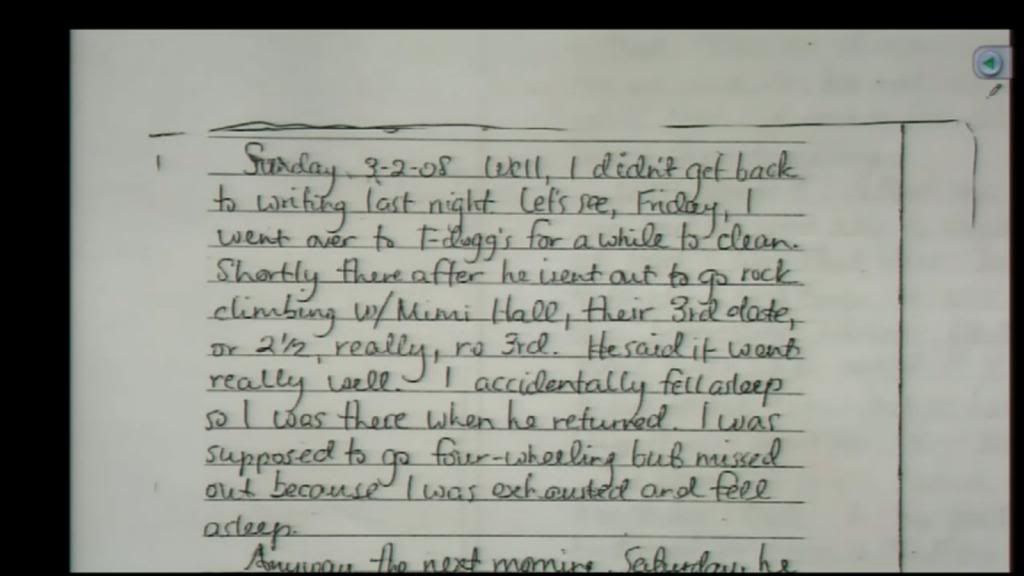 Sunday, 3-2-08 Well, I didn't get back
to writing last night. Let's see, Friday, I
went over to T-dogg's for a while to clean.
Shortly there after he went out to go rock
climbing w/Mimi Hall, their 3rd date,
or 2½, really, no 3rd. He said it went
really well. I accidentally fell asleep
so I was there when he returned. I was
supposed to go four-wheeling but missed
out because I was exhausted and fell
asleep.
Anyway the next morning, Saturday, he